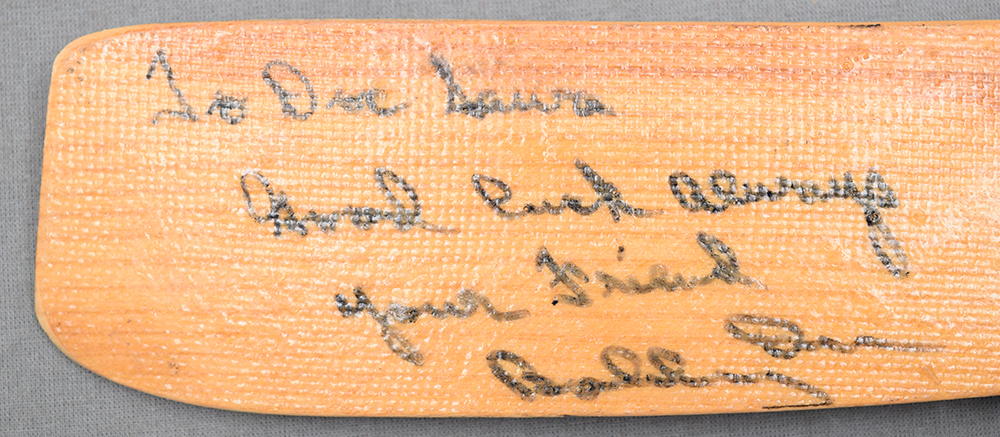 To Doc
Good Luck Always
your Friend
Bobby Orr